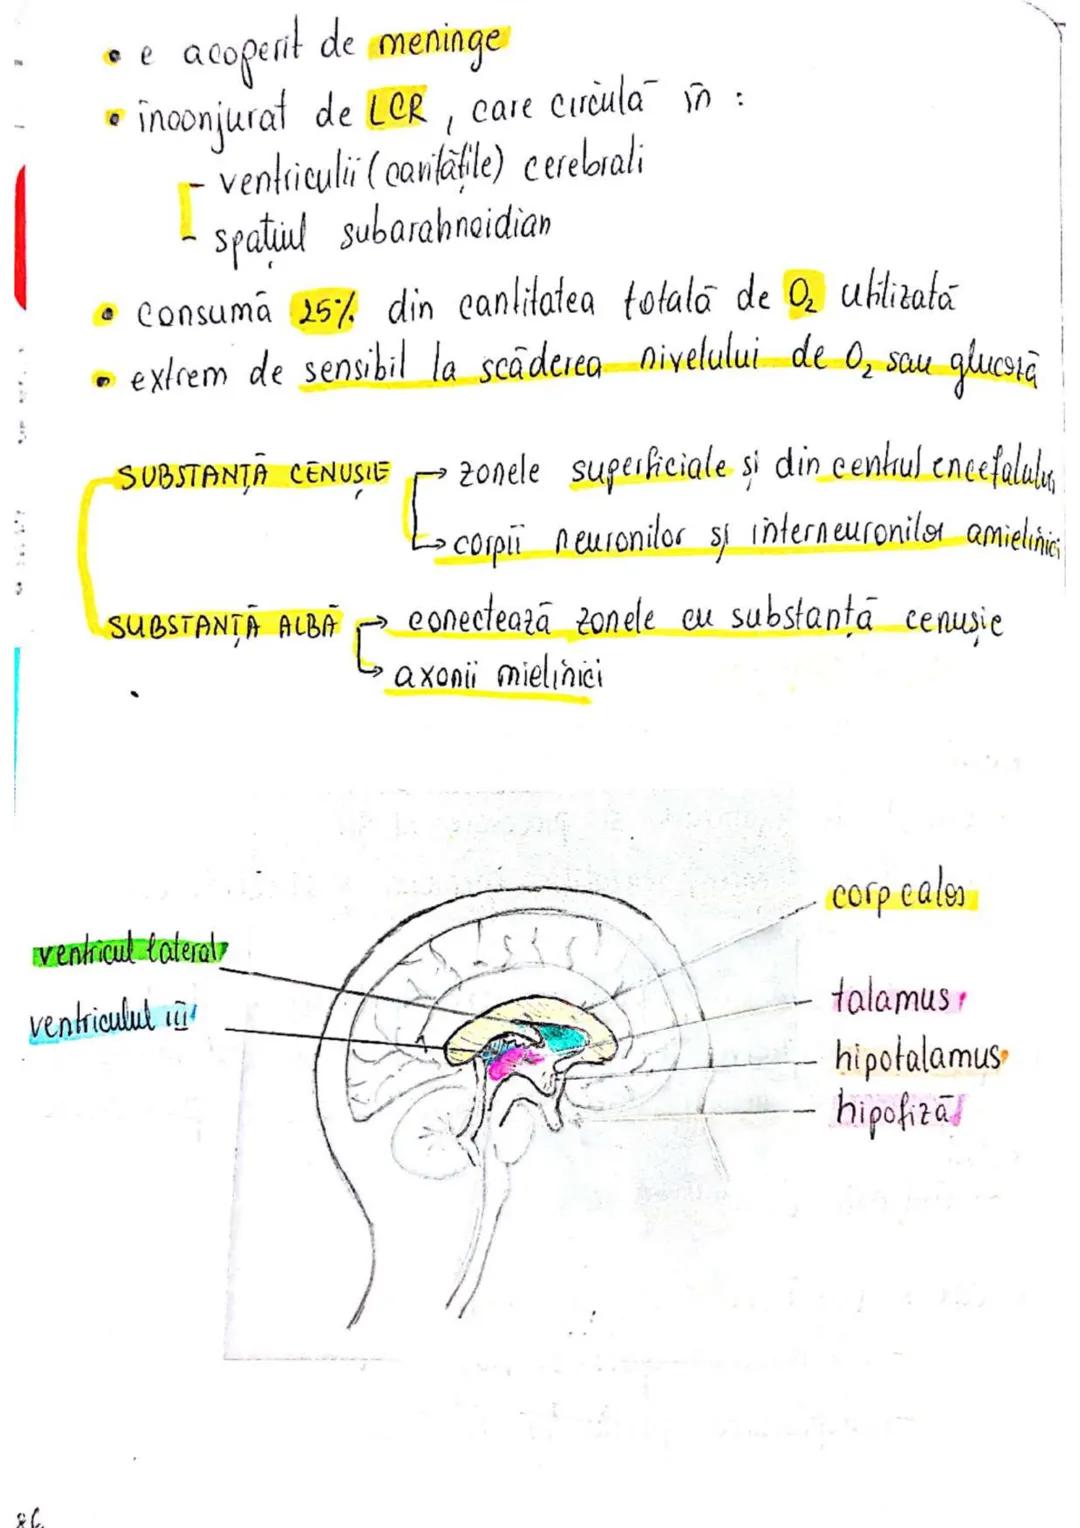 • e acoperit de meninge
• înconjurat de LCR, care circulă în :
- ventriculii (cavitățile) cerebrali
- spațiul subarahnoidian
• consumă 25% din cantitatea totală de O₂ utilizată
• extrem de sensibil la scăderea nivelului de O₂ sau glucoză
SUBSTANȚĂ CENUȘIE → zonele superficiale și din centrul encefalului
→ corpii neuronilor și interneuronilor amielinici
SUBSTANȚĂ ALBĂ → conectează zonele cu substanță cenușie
→ axonii mielinici
corp calos
ventricul lateral
talamus
ventriculul III
hipotalamus
hipofiză